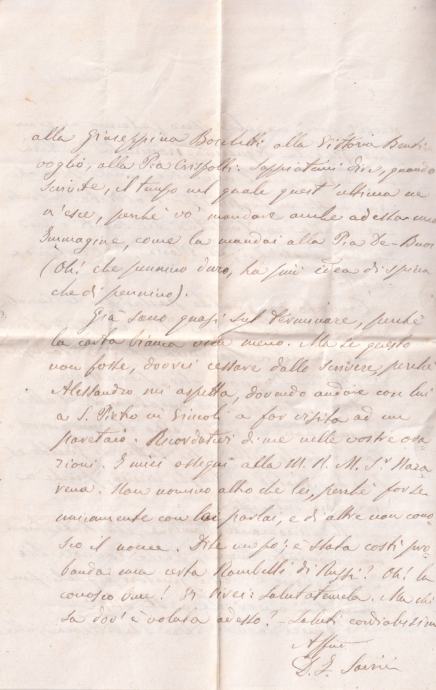 alla Giuseppina Bocchetti alla Vittoria Benti
voglio, alla Pia Crispolti. Sappiatemi dir, quando
scrivete, il tempo nel quale quest'ultima ne
n'esce, perchè vo' mandare anche ad essa una
Immagine, come la mandai alla Pia De-Buoi
(Oh! che pennino duro, ha più idea di spina
che di pennino).
Già sono quasi sul terminare, perchè
la carta bianca vien meno. Ma se questo
non fosse, dovrei cessare dallo scrivere, perchè
Alessandro mi aspetta, dovendo andare con lui
a S. Pietro in Vincoli a far visita ad un
paretaio. Ricordatevi di me nelle vostre ora
zioni. I miei ossequi alla M. R. M. Sr Naza
rena. Non nomino altro che lei, perchè forse
unicamente con lei parlai, e di altre non cono
sco il nome. Dite un po'; è stata costì pro
banda una certa Rambelli di Russi? Oh! la
conosco una! Si vive: salutatemela. Ma chi
sa dov'è volata adesso? - Saluti cordialissimi
Affmo
D. L.